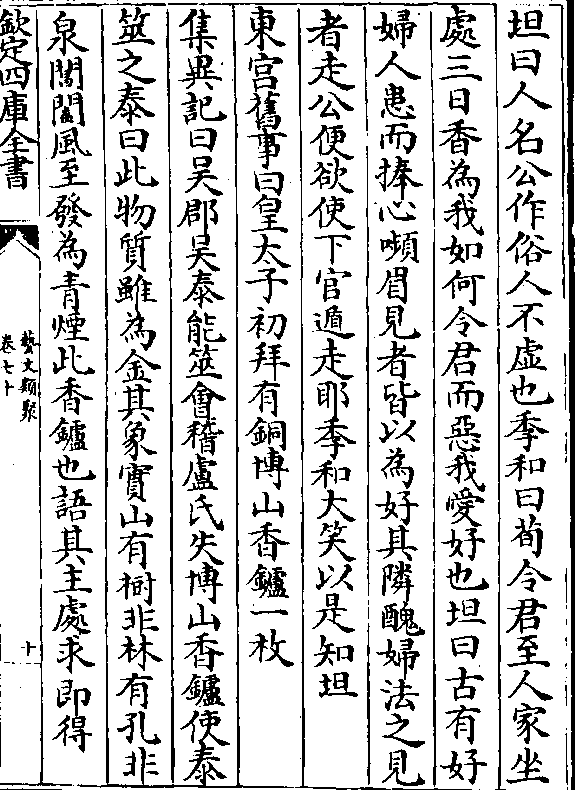 坦曰人名公作俗人不虚也季和曰荀令君至人家坐
處三日香為我如何令君而惡我愛好也坦曰古有好
婦人患而捧心嚬眉見者皆以為好其隣醜婦法之見
者走公便欲使下官遁走耶季和大笑以是知坦
東宫舊事曰皇太子初拜有銅博山香鑪一枚
集異記曰吴郡吴泰能筮會稽盧氏失博山香鑪使泰
筮之泰曰此物質雖為金其象實山有樹非林有孔非
泉閶闔風至發為青煙此香鑪也語其主處求即得
欽定四庫全書
藝文類聚
卷七十
十